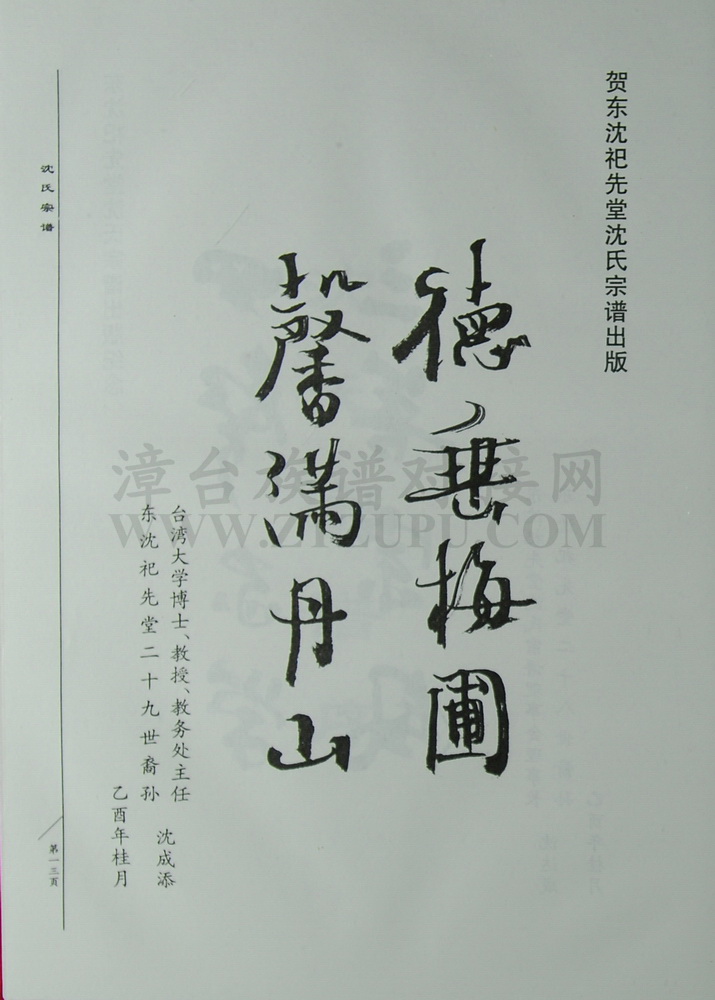 贺东沈祀先堂沈氏宗谱出版
德垂梅圃
馨满丹山
台湾大学博士、教授、教务处主任
东沈祀先堂二十九世裔孙
沈成添
乙酉年桂月
沈氏宗谱
第一三页
漳台族谱对接网
WWW.ZTZUPU.COM